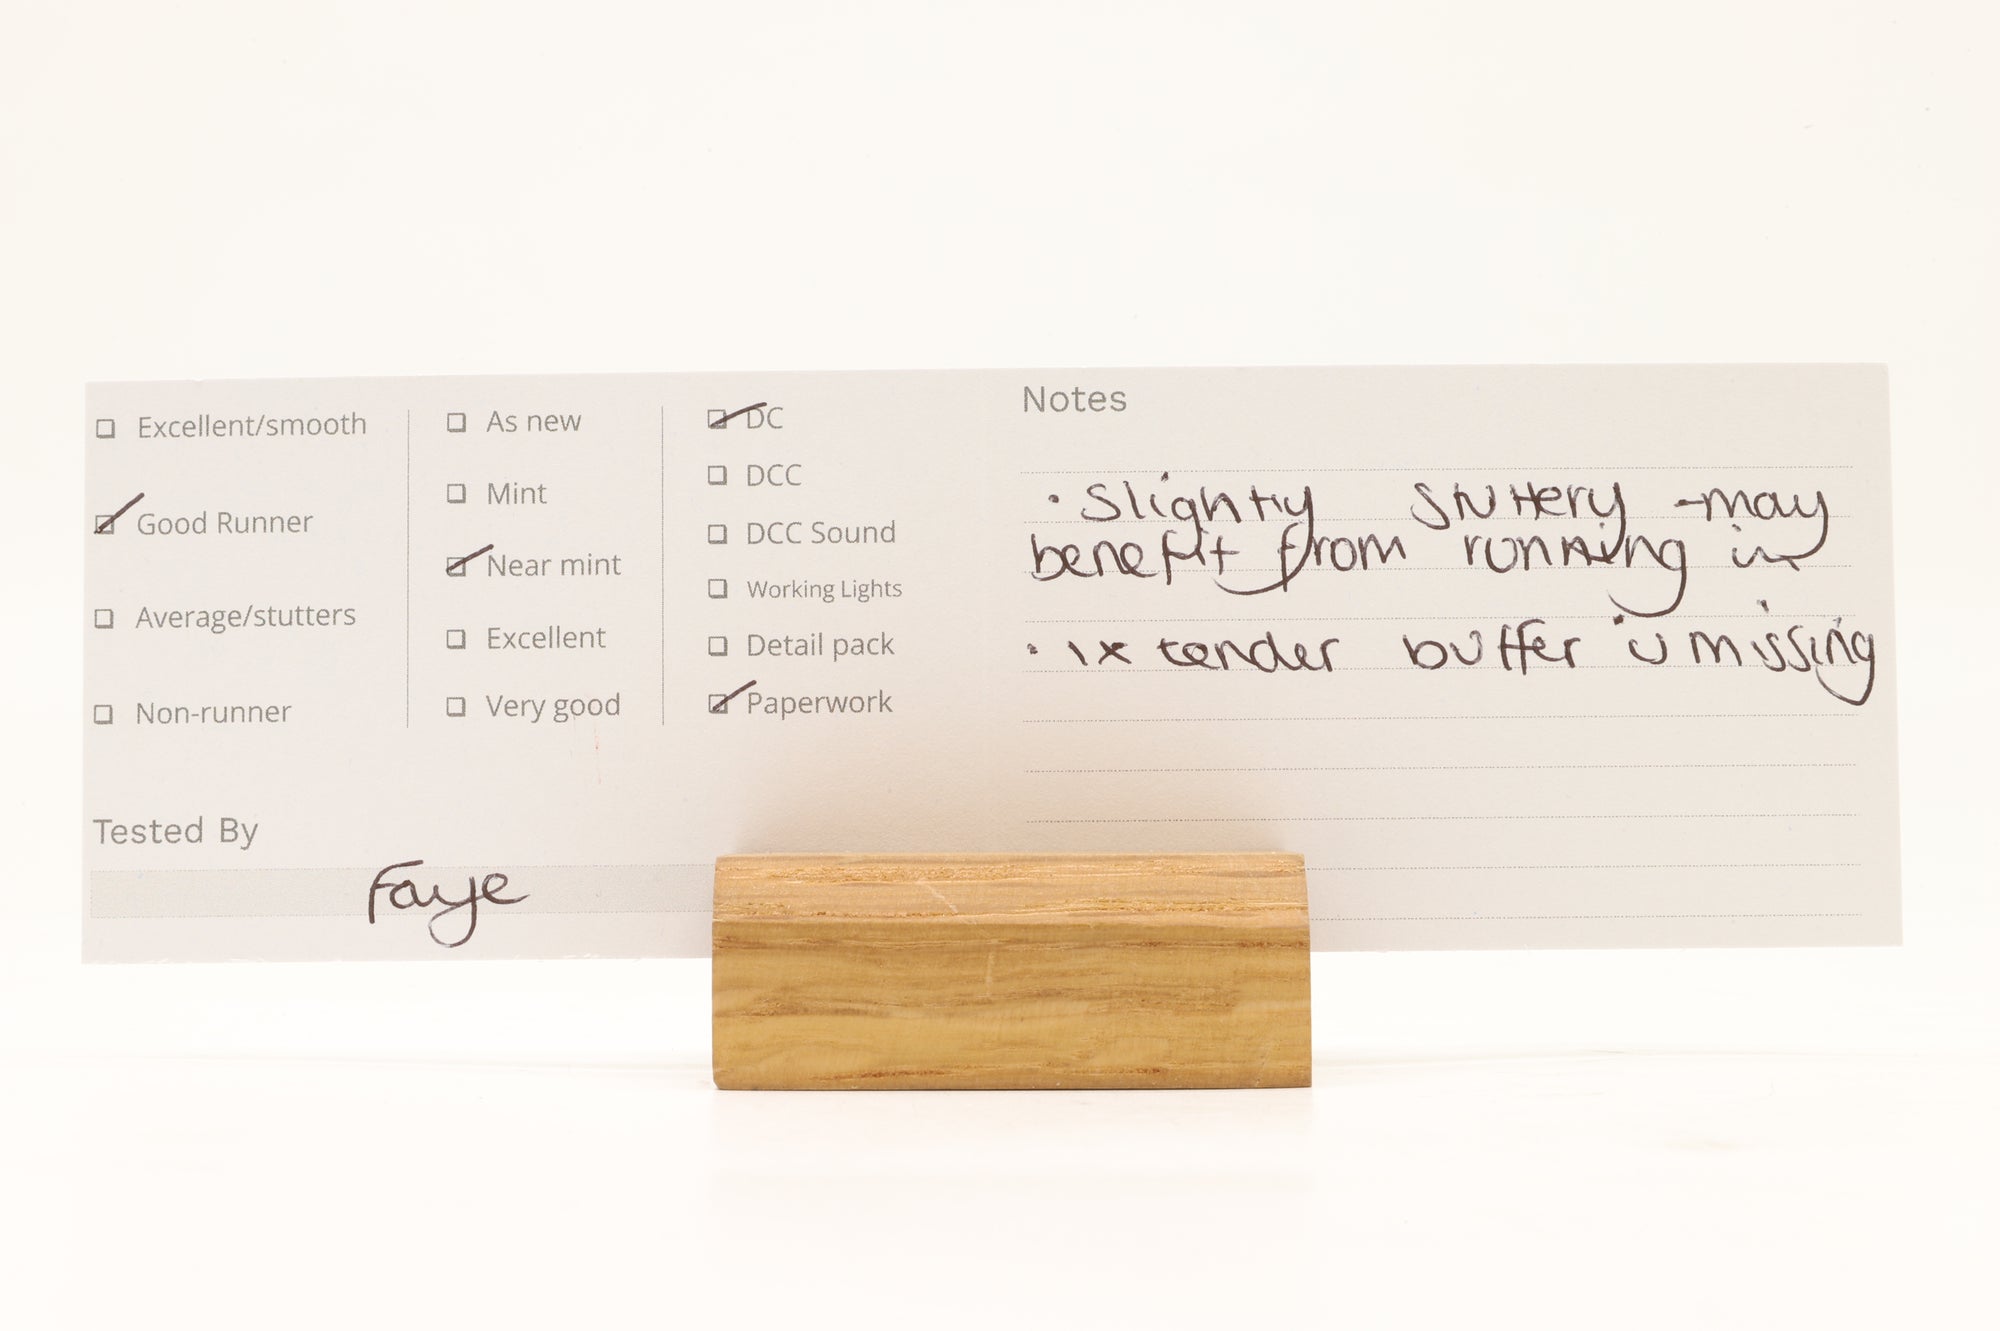 Excellent/smooth
Good Runner
Average/stutters
Non-runner
As new
Mint
Near mint
Excellent
Very good
DC
DCC
DCC Sound
Working Lights
Detail pack
Paperwork
Tested By
Faye
Notes
• Slightly stuttery - may
benefit from running in
• 1x tender buffer is missing